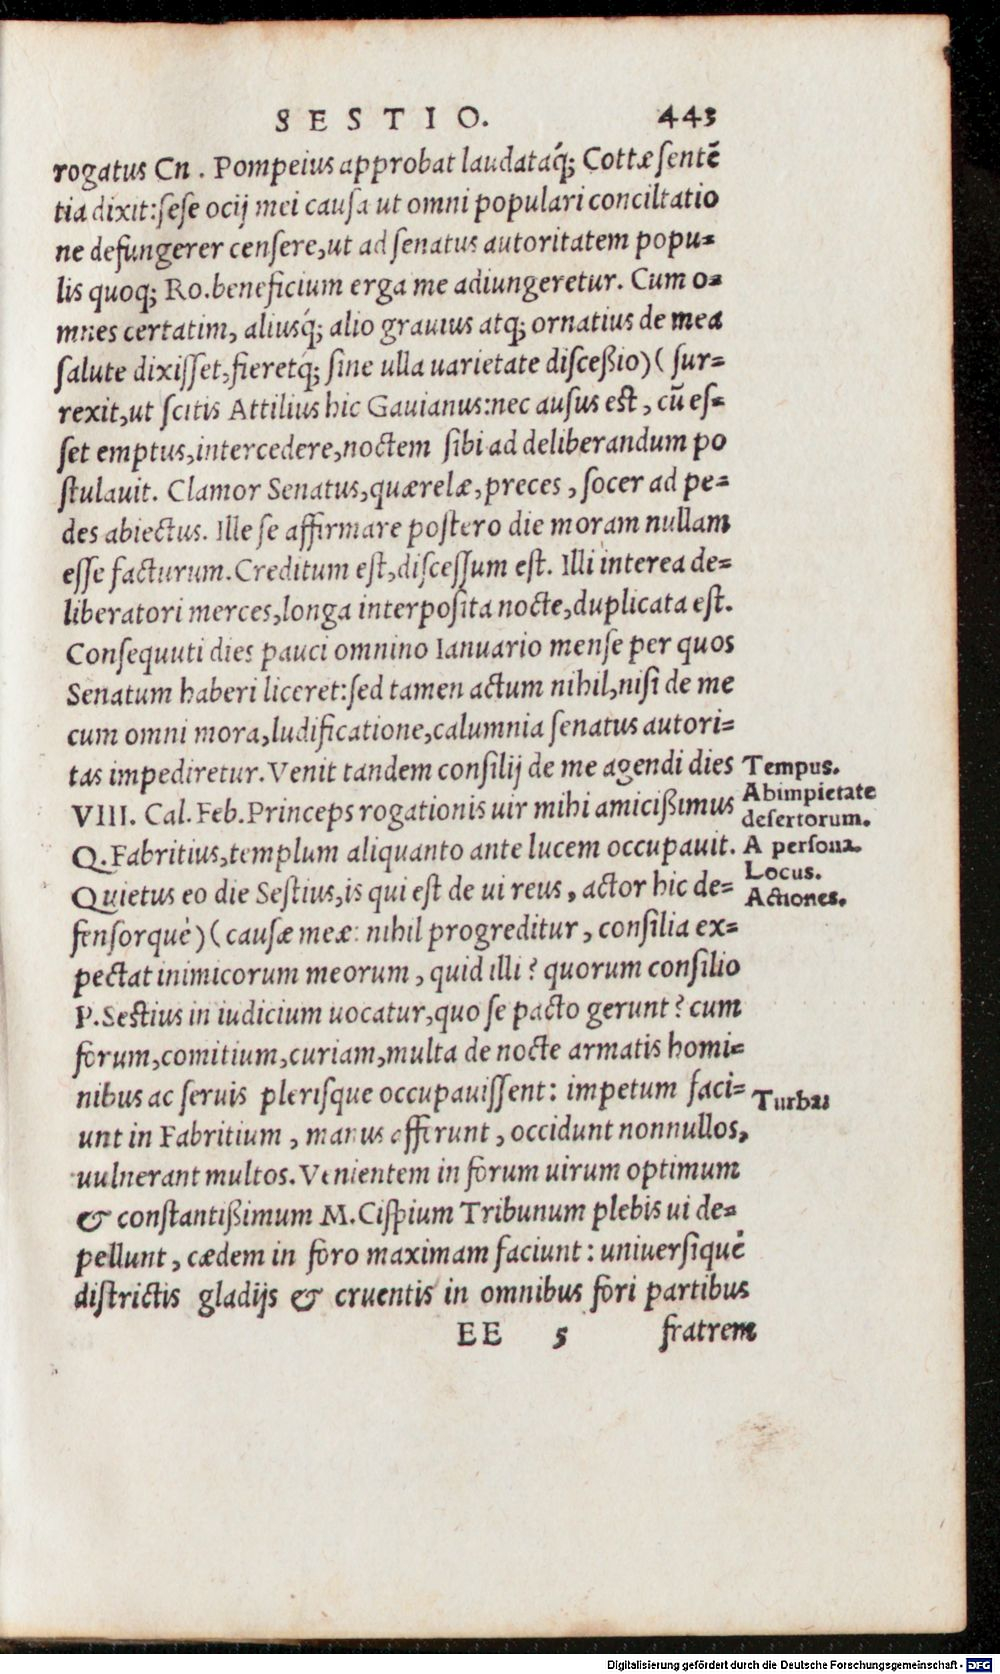 SESTIO. 443
rogatus Cn. Pompeius approbat laudataq́; Cottæ sentē
tia dixit: sese ocij mei causa ut omni populari conciltatio
ne defungerer censere, ut ad senatus autoritatem popu=
lis quoq; Ro. beneficium erga me adiungeretur. Cum o=
mnes certatim, aliusq́; alio grauius atq; ornatius de mea
salute dixisset, fieretq́; sine ulla uarietate disceßio)( sur=
rexit, ut scitis Attilius hic Gauianus: nec ausus est, cū es=
set emptus, intercedere, noctem sibi ad deliberandum po
stulauit. Clamor Senatus, quærelæ, preces, socer ad pe=
des abiectus. Ille se affirmare postero die moram nullam
esse facturum. Creditum est, discessum est. Illi interea de=
liberatori merces, longa interposita nocte, duplicata est.
Consequuti dies pauci omnino Ianuario mense per quos
Senatum haberi liceret: sed tamen actum nihil, nisi de me
cum omni mora, ludificatione, calumnia senatus autori=
tas impediretur. Venit tandem consilij de me agendi dies
VIII. Cal. Feb. Princeps rogationis uir mihi amicißimus
Q. Fabritius, templum aliquanto ante lucem occupauit.
Quietus eo die Sestius, is qui est de ui reus, actor hic de=
fensorquè)( causæ meæ: nihil progreditur, consilia ex=
pectat inimicorum meorum, quid illi? quorum consilio
P. Sestius in iudicium uocatur, quo se pacto gerunt? cum
forum, comitium, curiam, multa de nocte armatis homi=
nibus ac seruis plerisque occupauissent: impetum faci=
unt in Fabritium, manus afferunt, occidunt nonnullos,
uulnerant multos. Venientem in forum uirum optimum
& constantißimum M. Cispium Tribunum plebis ui de=
pellunt, cædem in foro maximam faciunt: uniuersiquè
districtis gladijs & cruentis in omnibus fori partibus
EE 5 fratrem
Tempus.
Ab impietate
desertorum.
A persona.
Locus.
Actiones.
Turbæ
Digitalisierung gefördert durch die Deutsche Forschungsgemeinschaft - DFG